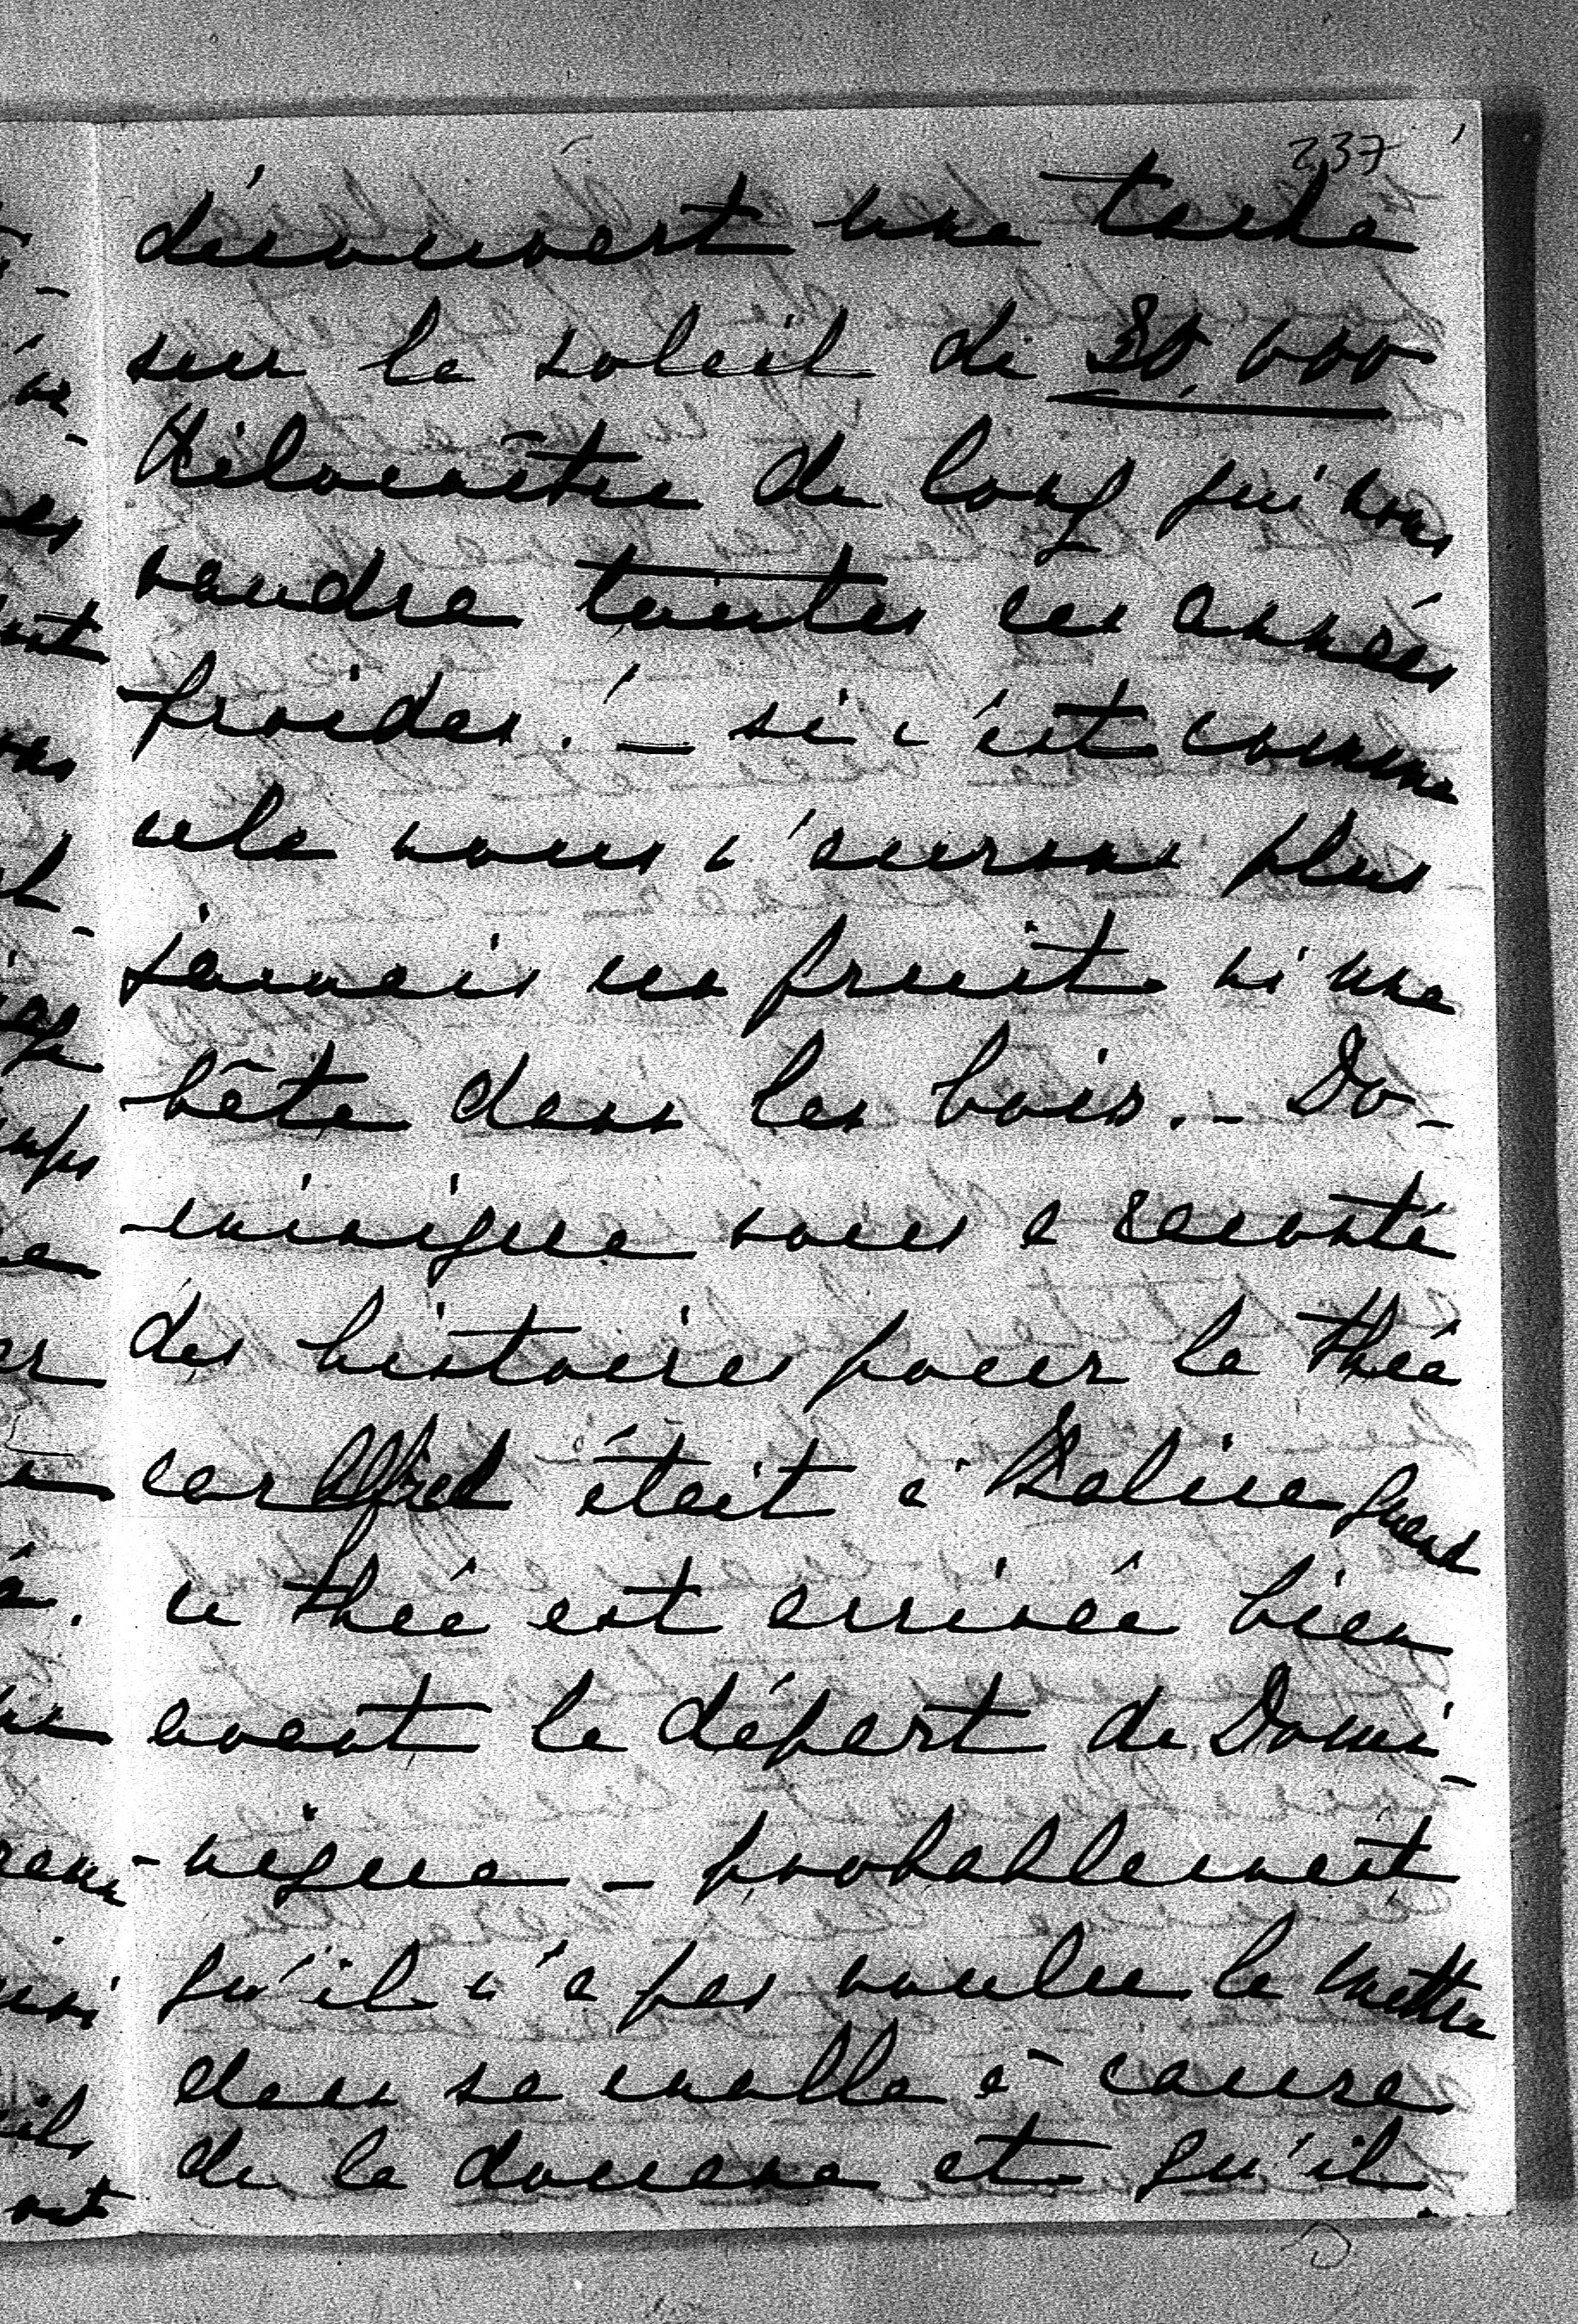 237
découvert une tache
sur le soleil de 80.000
Kilomètre de long qui nous
vaudra toutes ces années
froides! — si c'est comme
cela nous n'aurons plus
jamais un fruit ni une
bête dans les bois. — Do-
-minique nous a raconté
des histoires pour le thée
car Alfred était à Kalina quand
ce thée est arrivée bien
avant le départ de Domi-
-nique — probablement
qu'il n'a pas voulu le mettre
dans sa malle à cause
de la douane et qu'il